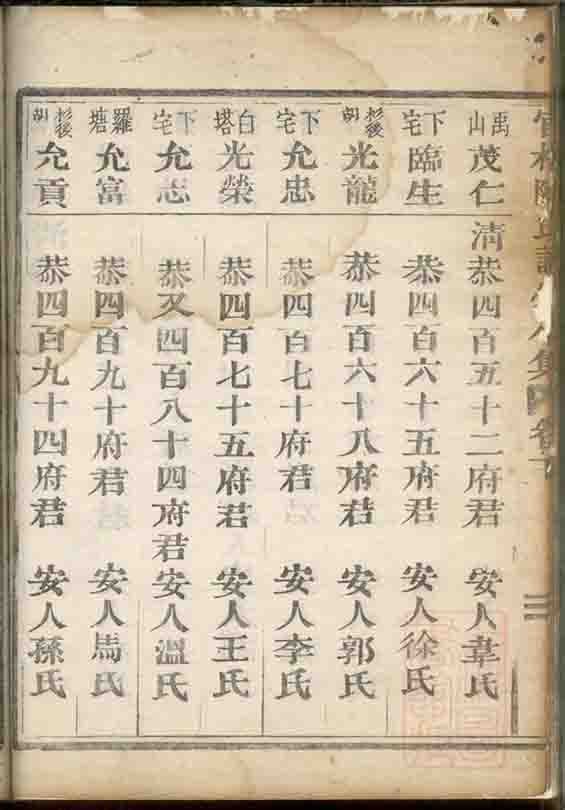 禹山 茂仁 清 恭四百五十二府君 安人韋氏
下宅 臨生 恭四百六十五府君 安人徐氏
杉後 光龍 恭四百六十八府君 安人郭氏
下宅 允忠 恭四百七十府君 安人李氏
白塔 光榮 恭四百七十五府君 安人王氏
下宅 允志 恭又四百八十四府君 安人溫氏
羅塘 允富 恭四百九十府君 安人馬氏
杉後 允貢 恭四百九十四府君 安人孫氏